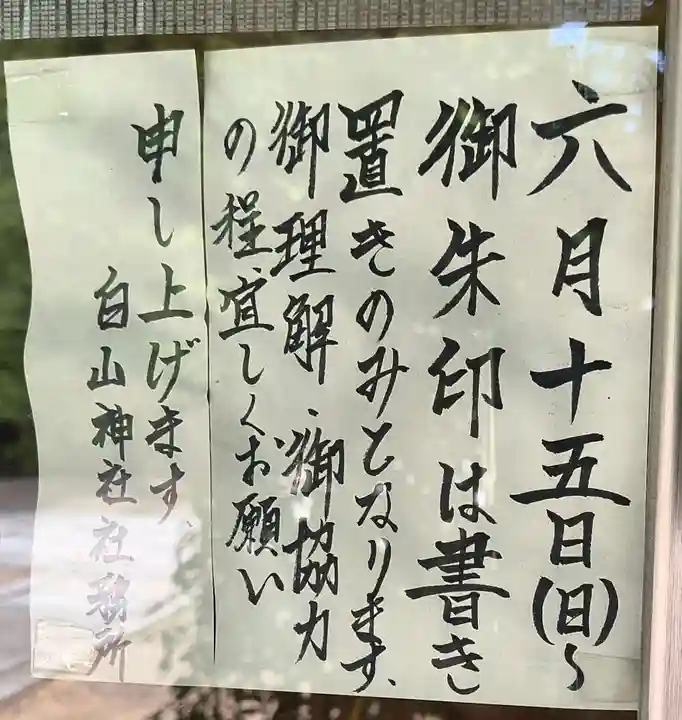 六月十五日(日)〜
御朱印は書き
置きのみとなります、
御理解、御協力
の程、宜しくお願い
申し上げます、
白山神社社務所